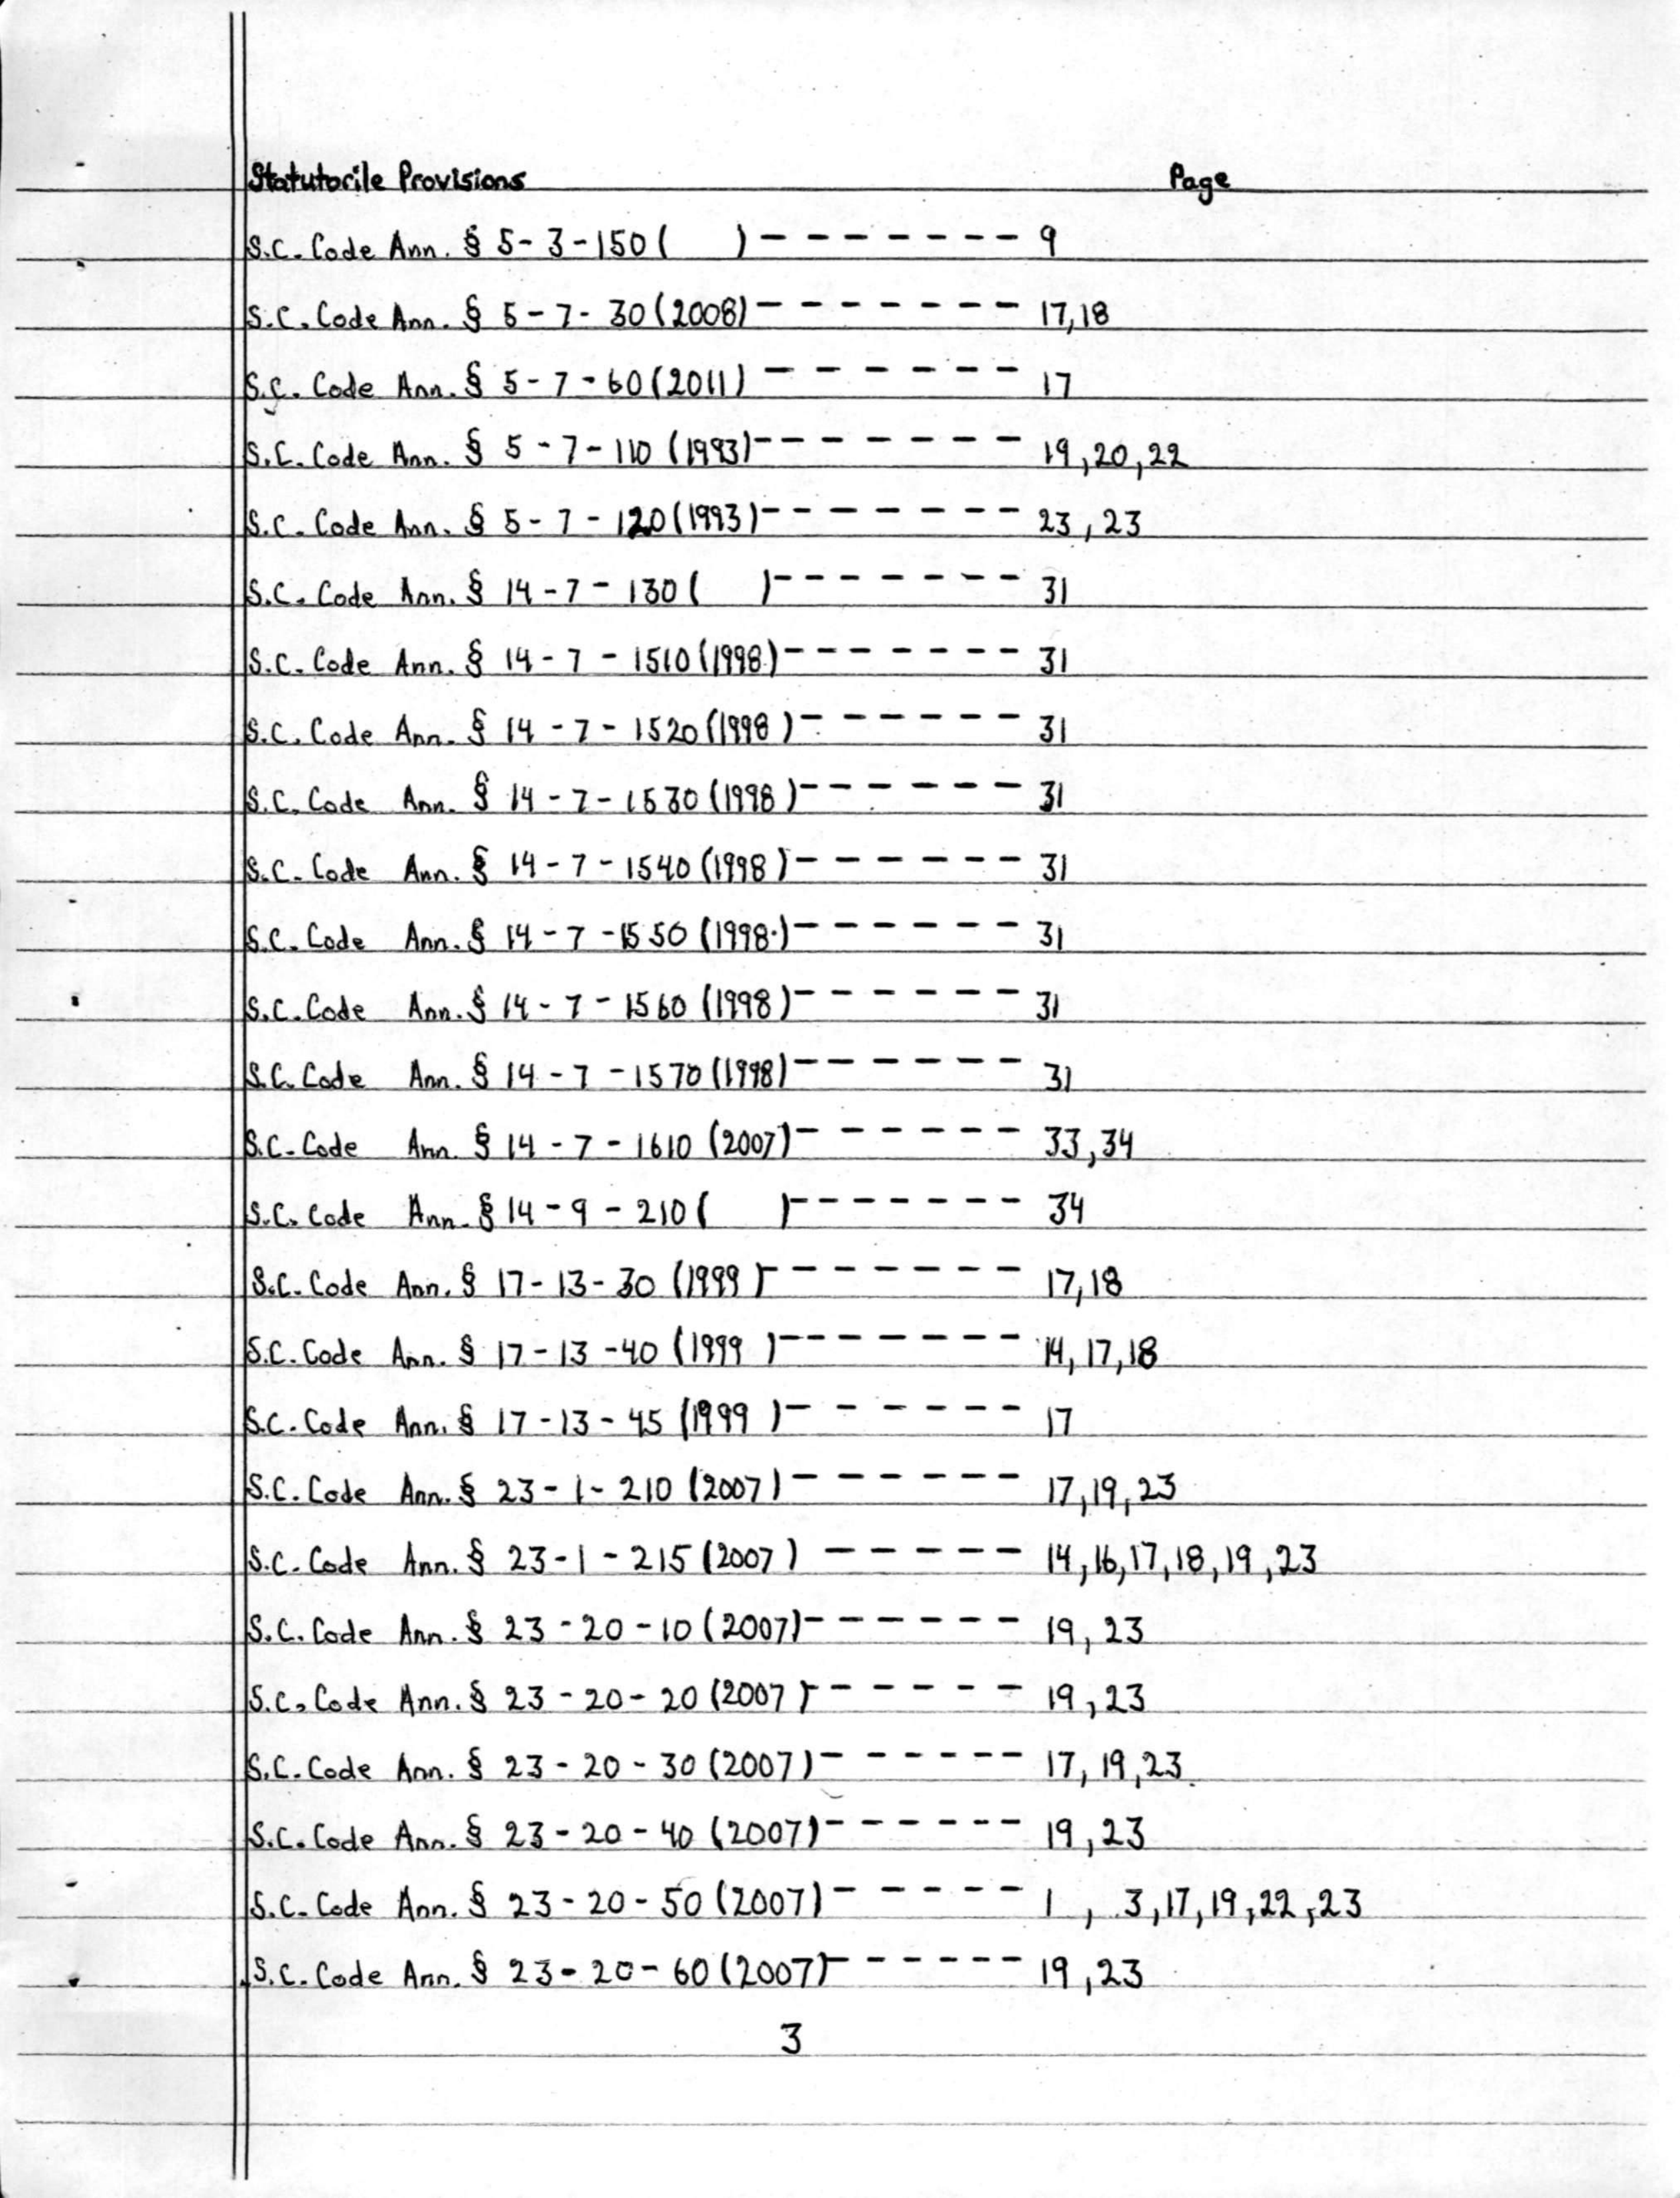 Statutorile Provisions Page
S.C. Code Ann. § 5-3-150 ( ) -------- 9
S.C. Code Ann. § 5-7-30 (2008) ------- 17,18
S.C. Code Ann. § 5-7-60 (2011) ------ 17
S.C. Code Ann. § 5-7-110 (1993) ------- 19,20,22
S.C. Code Ann. § 5-7-120 (1993) -------- 23,23
S.C. Code Ann. § 14-7-130 ( ) ------- 31
S.C. Code Ann. § 14-7-1510 (1998) ------- 31
S.C. Code Ann. § 14-7-1520 (1998) ------ 31
S.C. Code Ann. § 14-7-1530 (1998) ------ 31
S.C. Code Ann. § 14-7-1540 (1998) ------- 31
S.C. Code Ann. § 14-7-1550 (1998) ------- 31
S.C. Code Ann. § 14-7-1560 (1998) ------- 31
S.C. Code Ann. § 14-7-1570 (1998) ------- 31
S.C. Code Ann. § 14-7-1610 (2007) ------ 33,34
S.C. Code Ann. § 14-9-210 ( ) ------- 34
S.C. Code Ann. § 17-13-30 (1999) ------- 17,18
S.C. Code Ann. § 17-13-40 (1999) -------- 14,17,18
S.C. Code Ann. § 17-13-45 (1999) ------- 17
S.C. Code Ann. § 23-1-210 (2007) ------ 17,19,23
S.C. Code Ann. § 23-1-215 (2007) ----- 14,16,17,18,19,23
S.C. Code Ann. § 23-20-10 (2007) ------ 19,23
S.C. Code Ann. § 23-20-20 (2007) ------ 19,23
S.C. Code Ann. § 23-20-30 (2007) ------ 17,19,23
S.C. Code Ann. § 23-20-40 (2007) ------ 19,23
S.C. Code Ann. § 23-20-50 (2007) ----- 1, 3,17,19,22,23
S.C. Code Ann. § 23-20-60 (2007) ------ 19,23
3